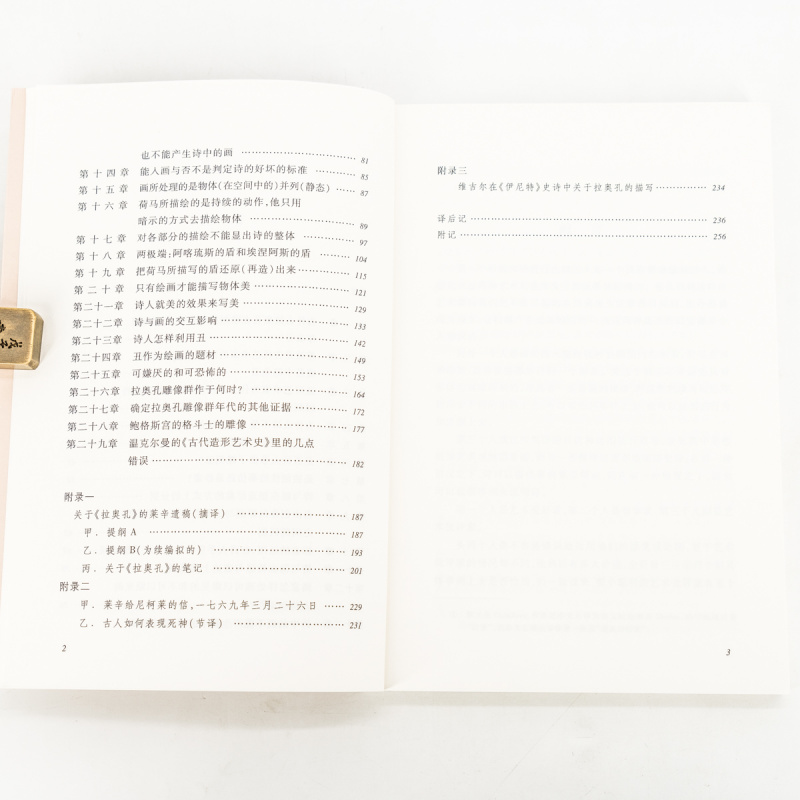 也不能产生诗中的画 …………………………… 81
第十四章 能入画与否不是判定诗的好坏的标准 ……………… 85
第十五章 画所处理的是物体(在空间中的)并列(静态) …… 87
第十六章 荷马所描绘的是持续的动作,他只用
暗示的方式去描绘物体 …………………………… 89
第十七章 对各部分的描绘不能显出诗的整体 ………………… 97
第十八章 两极端:阿喀琉斯的盾和埃涅阿斯的盾 ……… 104
第十九章 把荷马所描写的盾还原(再造)出来…………… 115
第二十章 只有绘画才能描写物体美 ……………………… 121
第二十一章 诗人就美的效果来写美 ……………………… 129
第二十二章 诗与画的交互影响 …………………………… 133
第二十三章 诗人怎样利用丑 ……………………………… 142
第二十四章 丑作为绘画的题材 …………………………… 149
第二十五章 可嫌厌的和可恐怖的 ………………………… 153
第二十六章 拉奥孔雕像群作于何时? …………………… 164
第二十七章 确定拉奥孔雕像群年代的其他证据 ………… 172
第二十八章 鲍格斯宫的格斗士的雕像 …………………… 177
第二十九章 温克尔曼的《古代造形艺术史》里的几点
错误 ……………………………………………… 182
附录一
关于《拉奥孔》的莱辛遗稿(摘译) …………………… 187
甲. 提纲 A ……………………………………… 187
乙. 提纲 B(为续编拟的) ……………………… 193
丙. 关于《拉奥孔》的笔记 …………………… 201
附录二
甲. 莱辛给尼柯莱的信,一七六九年三月二十六日 …… 229
乙. 古人如何表现死神(节译) ………………………… 231
2
附录三
维吉尔在《伊尼特》史诗中关于拉奥孔的描写…………… 234
译后记 ………………………………………………… 236
附记 …………………………………………………… 256
3